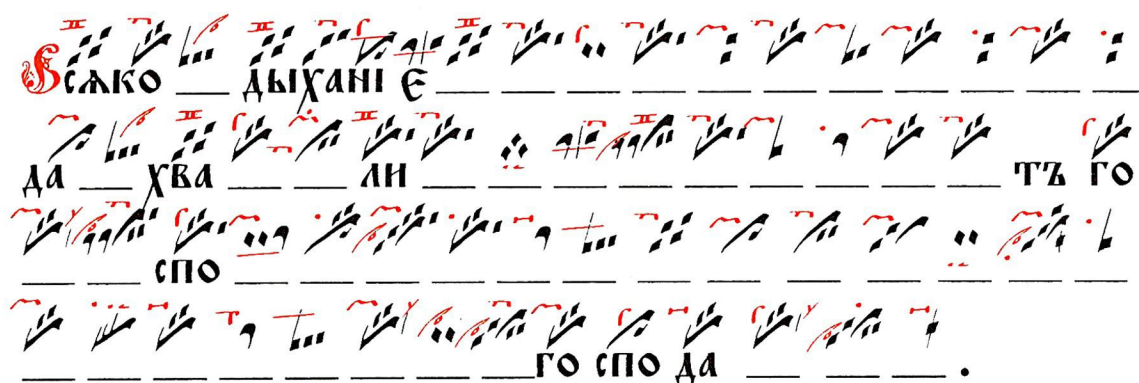 Всѧко __ дыханї е __ __ __ __ __ __ __ __ __ __ __ __
да __ хва __ __ ли __ __ __ __ __ __ __ __ __ __ тъ го
__ __ __ спо __ __ __ __ __ __ __ __ __ __ __ __
__ __ __ __ __ __ __ __ __ го спо да __ __ __ .